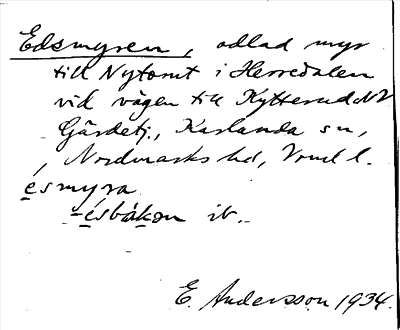 Edsmyren, odlad myr
till Nytomt i Herredalen
vid vägen till Kytterud NV
Gärdetj., Karlanda sn,
Nordmarks hd, Vrml l.
ésmyra
-ésbàkən ib.
E. Andersson 1934.